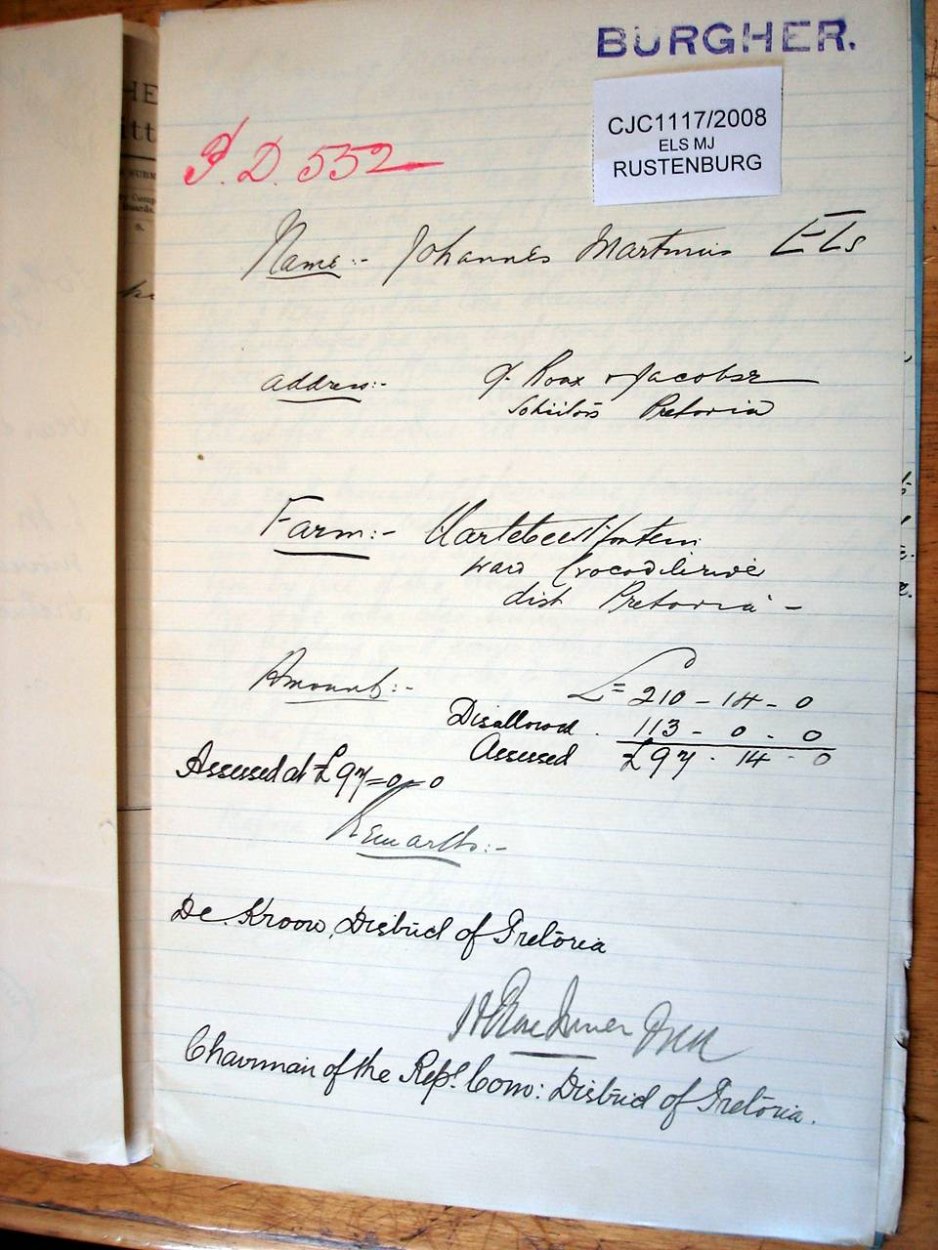 BURGHER.
CJC1117/2008
ELS MJ
RUSTENBURG
P.D. 552
Name:- Johannes Martinus Els
Address:- Roax & Jacobsz
Solicitors Pretoria
Farm:- Hartebeestfontein
ward Crocodilerivier
dist Pretoria -
Amount:- £= 210 - 14 - 0
Disallowed. 113 - 0 - 0
Assessed £97 - 14 - 0
Assessed at £97=0=0
Remarks:-
De. Kroon, District of Pretoria
Chairman of the Repn. Com: District of Pretoria.